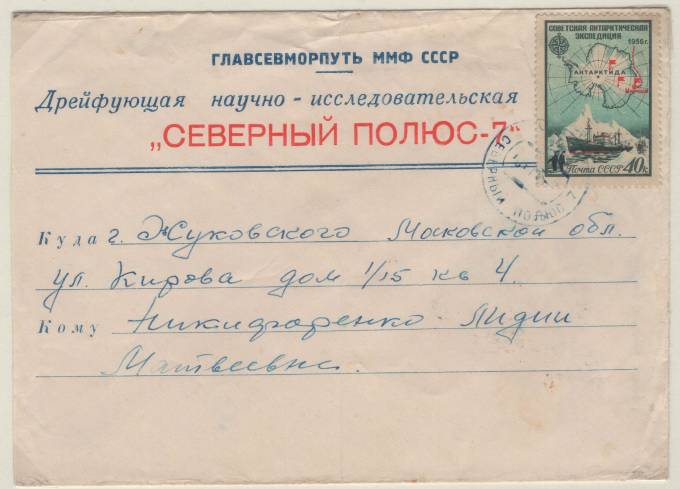 ГЛАВСЕВМОРПУТЬ ММФ СССР
Дрейфующая научно-исследовательская
„СЕВЕРНЫЙ ПОЛЮС-7"
СОВЕТСКАЯ АНТАРКТИЧЕСКАЯ
ЭКСПЕДИЦИЯ
1956г.
АНТАРКТИДА
Почта СССР 40к.
СЕВЕРНЫЙ ПОЛЮС 7
Куда г. Жуковского Московской обл.
ул. Кирова дом 1/15 кв 4.
Кому Никифаренко Лидии
Матвеевне.